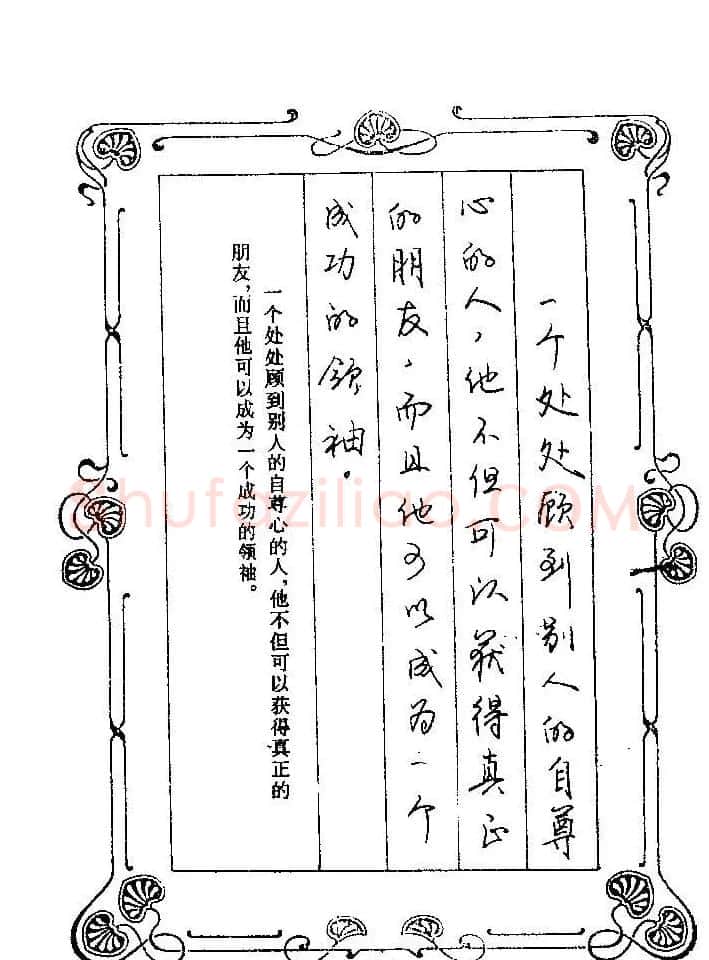 一个处处顾到别人的自尊
心的人，他不但可以获得真正
的朋友，而且他可以成为一个
成功的领袖。
一个处处顾到别人的自尊心的人，他不但可以获得真正的
朋友，而且他可以成为一个成功的领袖。
Shufaziliao.COM